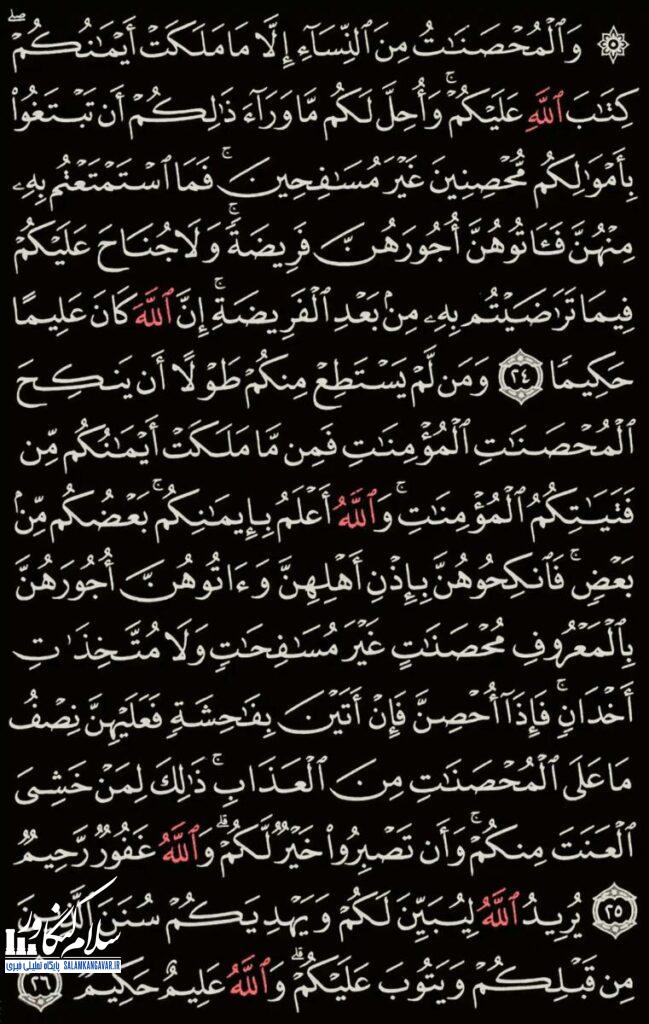 ۞ وَٱلْمُحْصَنَٰتُ مِنَ ٱلنِّسَآءِ إِلَّا مَا مَلَكَتْ أَيْمَٰنُكُمْ ۖ
كِتَٰبَ ٱللَّهِ عَلَيْكُمْ ۚ وَأُحِلَّ لَكُم مَّا وَرَآءَ ذَٰلِكُمْ أَن تَبْتَغُوا۟
بِأَمْوَٰلِكُم مُّحْصِنِينَ غَيْرَ مُسَٰفِحِينَ ۚ فَمَا ٱسْتَمْتَعْتُم بِهِۦ
مِنْهُنَّ فَـَٔاتُوهُنَّ أُجُورَهُنَّ فَرِيضَةً ۚ وَلَا جُنَاحَ عَلَيْكُمْ
فِيمَا تَرَٰضَيْتُم بِهِۦ مِنۢ بَعْدِ ٱلْفَرِيضَةِ ۚ إِنَّ ٱللَّهَ كَانَ عَلِيمًا
حَكِيمًا ٢٤ وَمَن لَّمْ يَسْتَطِعْ مِنكُمْ طَوْلًا أَن يَنكِحَ
ٱلْمُحْصَنَٰتِ ٱلْمُؤْمِنَٰتِ فَمِن مَّا مَلَكَتْ أَيْمَٰنُكُم مِّن
فَتَيَٰتِكُمُ ٱلْمُؤْمِنَٰتِ ۚ وَٱللَّهُ أَعْلَمُ بِإِيمَٰنِكُم ۚ بَعْضُكُم مِّنۢ
بَعْضٍ ۚ فَٱنكِحُوهُنَّ بِإِذْنِ أَهْلِهِنَّ وَءَاتُوهُنَّ أُجُورَهُنَّ
بِٱلْمَعْرُوفِ مُحْصَنَٰتٍ غَيْرَ مُسَٰفِحَٰتٍ وَلَا مُتَّخِذَٰتِ
أَخْدَانٍ ۚ فَإِذَآ أُحْصِنَّ فَإِنْ أَتَيْنَ بِفَٰحِشَةٍ فَعَلَيْهِنَّ نِصْفُ
مَا عَلَى ٱلْمُحْصَنَٰتِ مِنَ ٱلْعَذَابِ ۚ ذَٰلِكَ لِمَنْ خَشِىَ
ٱلْعَنَتَ مِنكُمْ ۚ وَأَن تَصْبِرُوا۟ خَيْرٌ لَّكُمْ ۗ وَٱللَّهُ غَفُورٌ رَّحِيمٌ
٢٥ يُرِيدُ ٱللَّهُ لِيُبَيِّنَ لَكُمْ وَيَهْدِيَكُمْ سُنَنَ ٱلَّذِينَ
مِن قَبْلِكُمْ وَيَتُوبَ عَلَيْكُمْ ۗ وَٱللَّهُ عَلِيمٌ حَكِيمٌ ٢٦
سلام کنگاور
پایگاه تحلیلی خبری SALAMKANGAVAR.IR